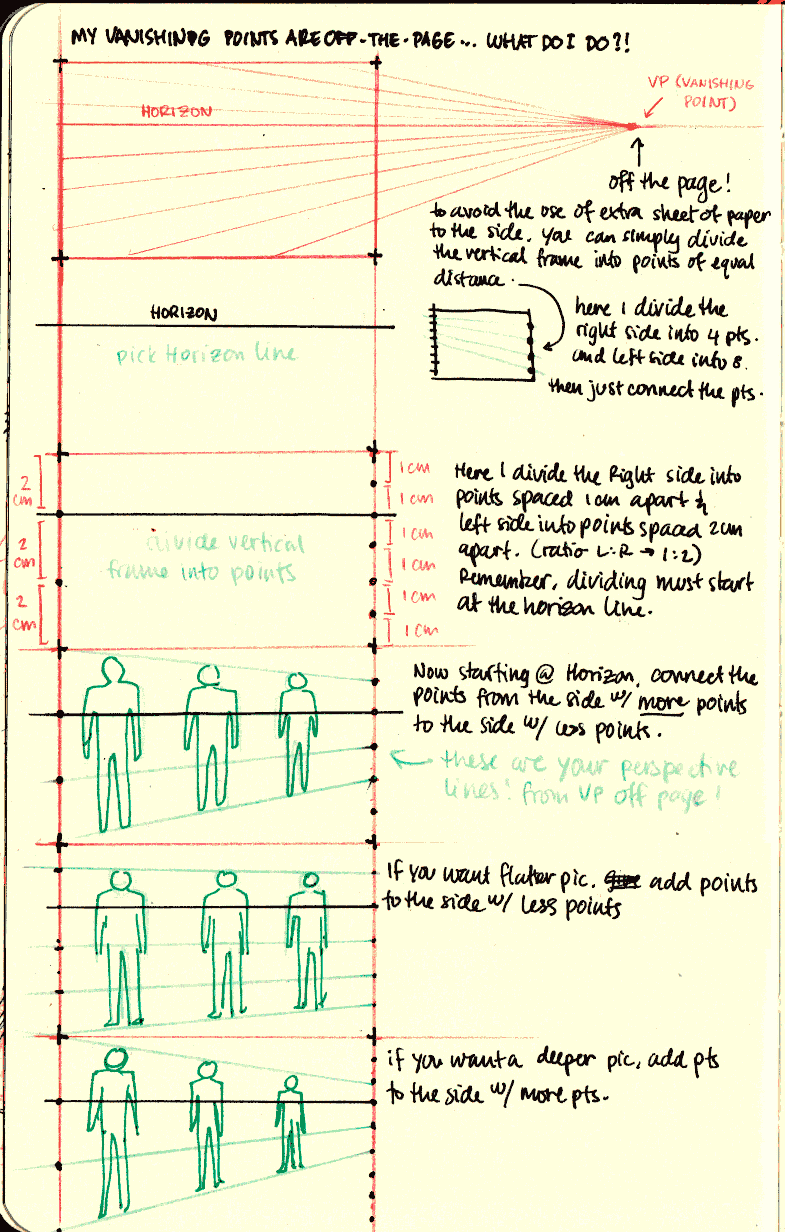 MY VANISHING POINTS ARE OFF-THE-PAGE... WHAT DO I DO?!
VP (VANISHING
POINT)
HORIZON
off the page!
to avoid the use of extra sheet of paper
to the side. you can simply divide
the vertical frame into points of equal
distance.
HORIZON
here I divide the
right side into 4 pts.
and left side into 8.
then just connect the pts.
pick Horizon line
2
cm
1cm
1cm
2
cm
1cm
1cm
2
cm
1cm
1cm
Here I divide the Right side into
points spaced 1cm apart &
left side into points spaced 2cm
apart. (ratio L:R → 1:2)
Remember, dividing must start
at the horizon line.
divide vertical
frame into points
Now starting @ Horizon, connect the
points from the side w/ more points
to the side w/ less points.
← these are your perspective
lines! from VP off page!
If you want flatter pic. add points
to the side w/ less points
if you want a deeper pic, add pts
to the side w/ more pts.